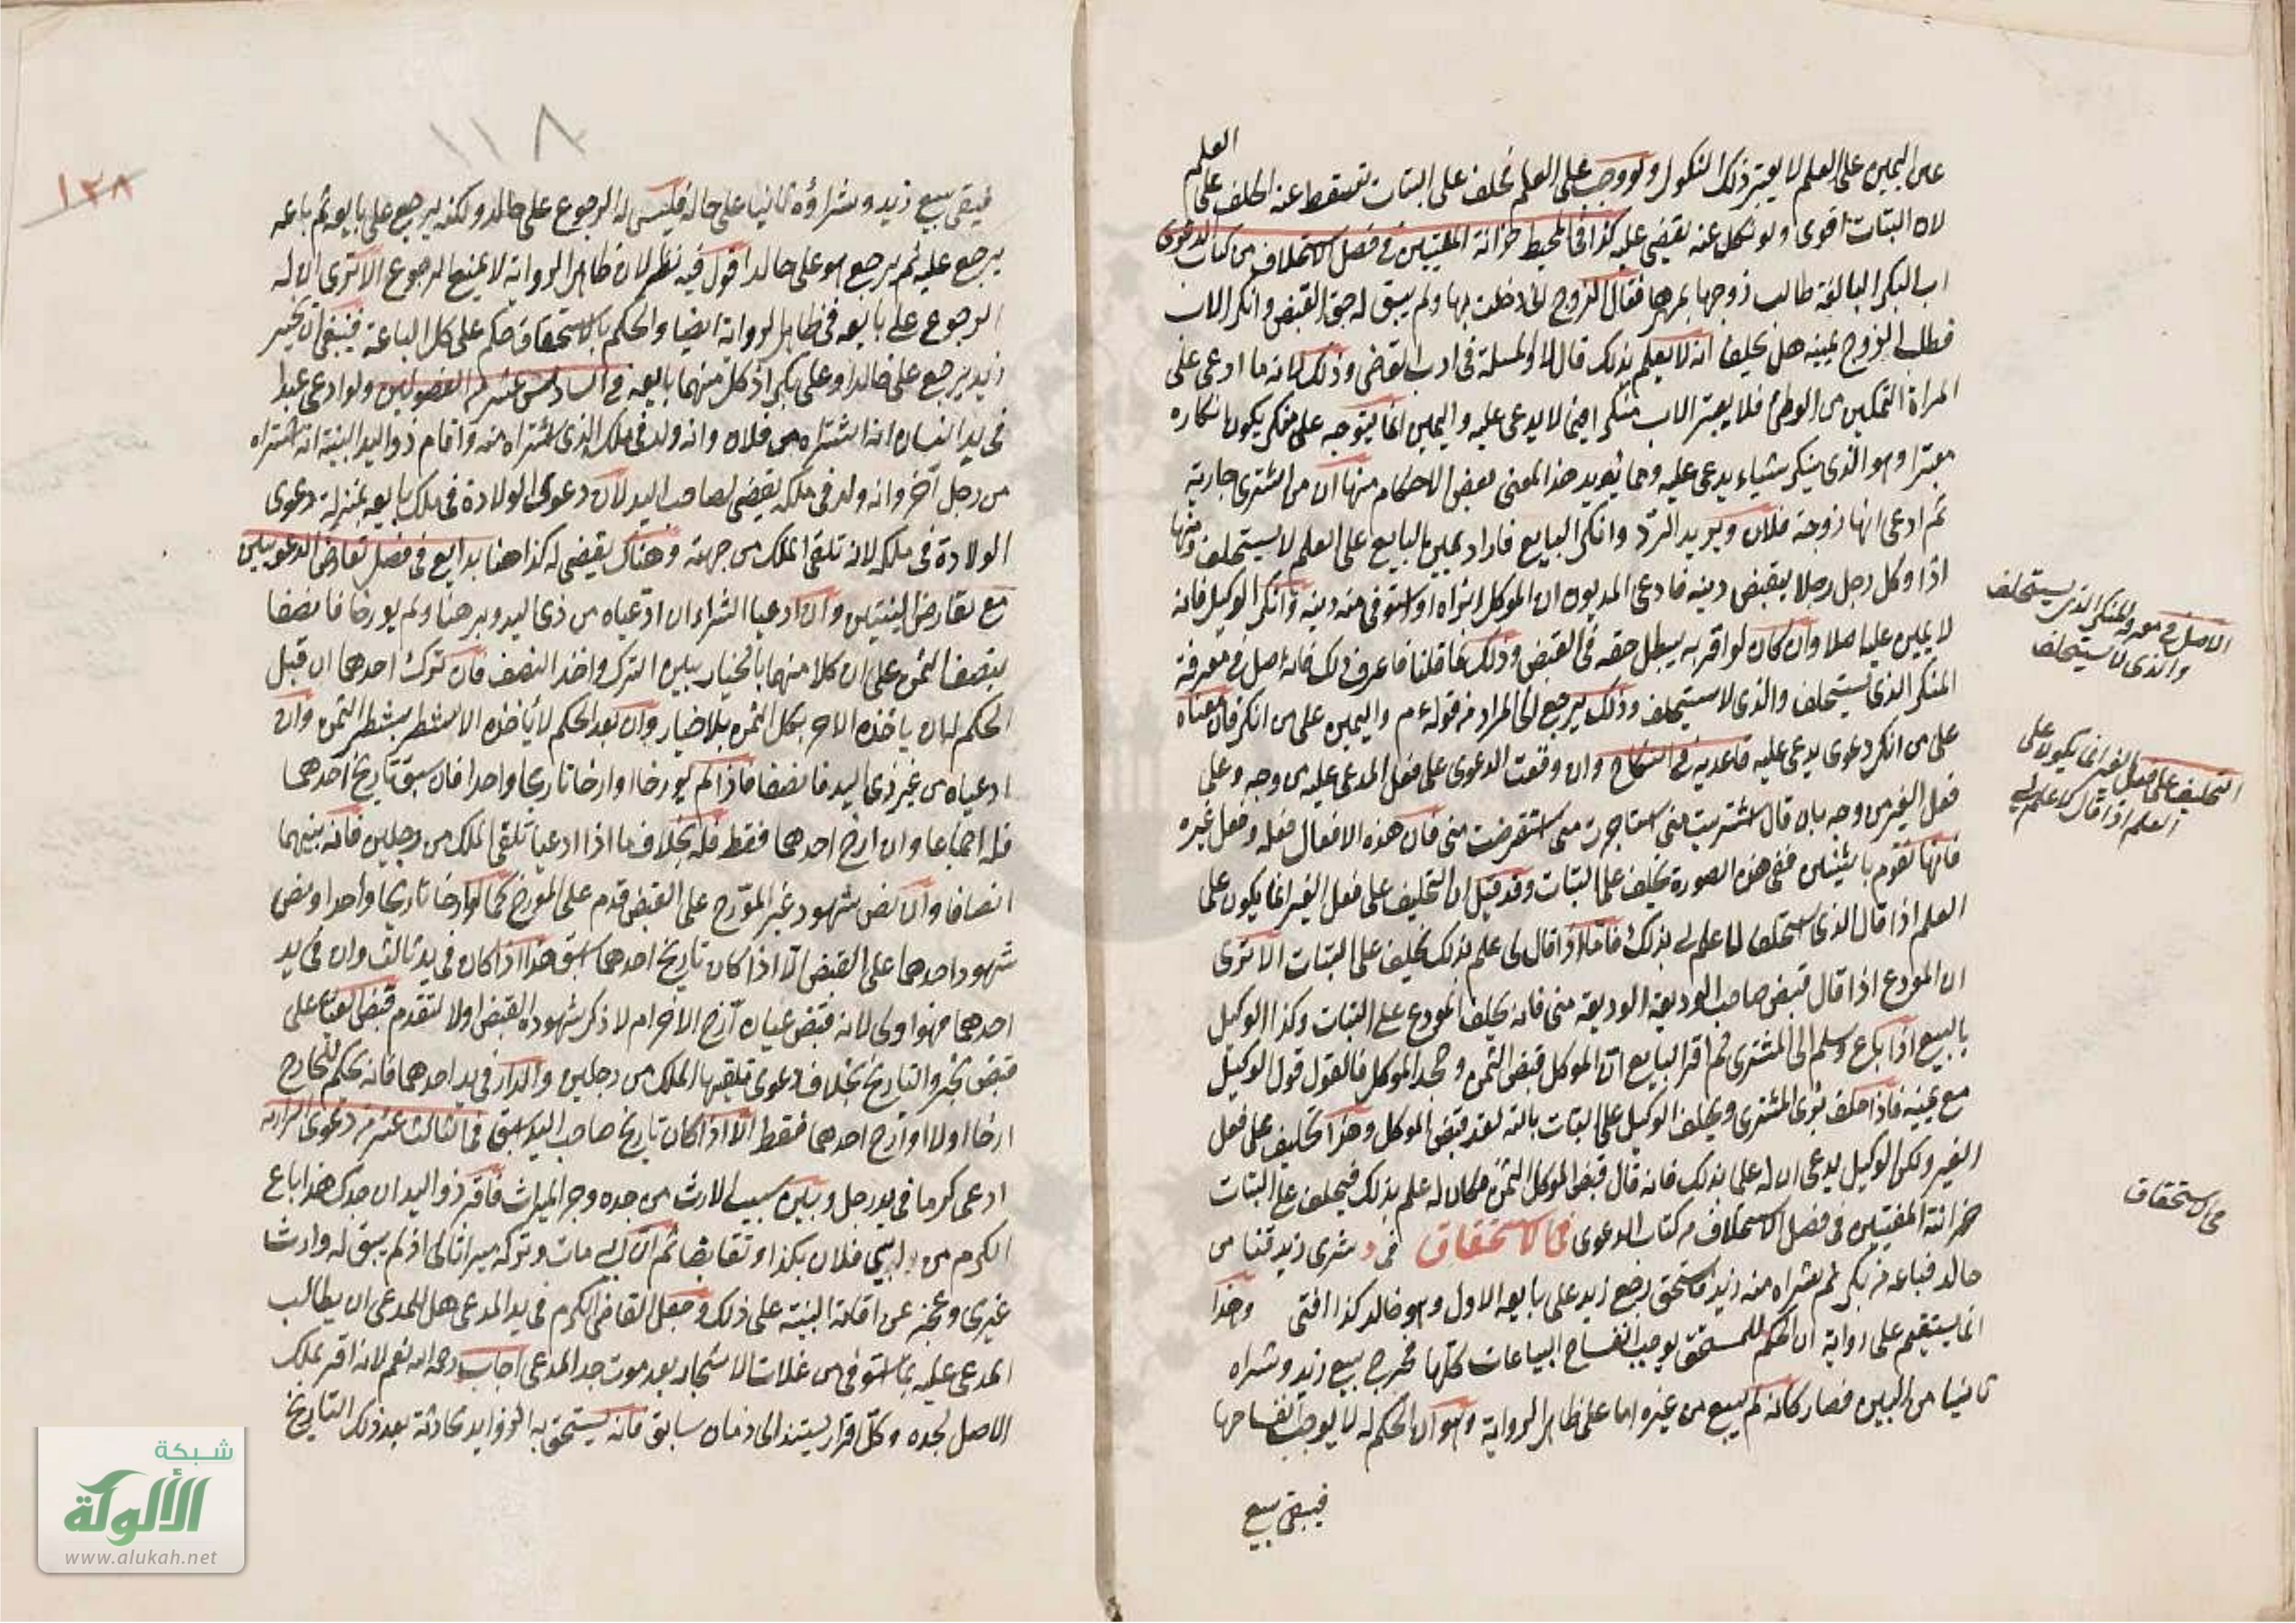 العلم
عن اليمين على العلم لا يعتبر ذلك النكول ولو وجب على العلم فحلف على البتات تسقط عنه الحلف على
لان البتات اقوى ولو نكل عنه يقضي عليه كذا في المحيط خزانة المفتين في فصل الاستحلاف من كتاب الدعوى
اب البكر البالغة طالب زوجها بمهرها فقال الزوج اني دخلت بها ولم يبق له حق القبض وانكر الاب
فطلب الزوج يمينه هل يحلف انه لا يعلم بذلك قال لا والمسئلة في ادب القاضي وذلك لانه ما ادعى على
المراة التمكين من الوطئ فلا يعتبر الاب منكر ايضا لا يدعى عليه واليمين انما يتوجه على منكر يكون انكاره
معتبرا وهو الذي ينكر شياء يدعى عليه ومما يؤيد هذا المعنى بعض الاحكام منها ان من اشترى جارية
ثم ادعى انها زوجة فلان ويريد الرد وانكر البايع فاراد يمين البايع على العلم لا يستحلف ومنها
اذا وكل رجل رجلا بقبض دينه فادعى المديون ان الموكل ابراه او استوفى منه دينه وانكر الوكيل فانه
لا يمين عليه اصلا وان كان لو اقر به يبطل حقه في القبض وذلك لما قلنا فاعرف ذلك فانه اصل في معرفة
المنكر الذي يستحلف والذي لا يستحلف وذلك يرجع الى المراد من قوله عم واليمين على من انكر فان معناه
على من انكر دعوى يدعى عليه قاعدية في النكاح وان وقعت الدعوى على فعل المدعى عليه من وجه وعلى
فعل الغير من وجه بان قال اشتريت مني استاجرت مني استقرضت مني فان هذه الافعال فعله وفعل غيره
فانها تقوم باثنين ففي هذه الصورة يحلف على البتات وقد قيل ان التحليف على فعل الغير انما يكون على
العلم اذا قال الذي استحلف لا علم لي بذلك فاما اذا قال لي علم بذلك يحلف على البتات الا ترى
ان المودع اذا قال قبض صاحب الوديعة الوديعة مني فانه يحلف المودع على البتات وكذا الوكيل
بالبيع اذا باع وسلم الى المشتري ثم اقر البايع ان الموكل قبض الثمن وجحد الموكل فالقول قول الوكيل
مع يمينه فاذا حلف برئ المشتري ويحلف الوكيل على البتات بالله لقد قبض الموكل وهذا تحليف على فعل
الغير ولكن الوكيل يدعى ان له علما بذلك فانه قال قبض الموكل الثمن فكان له علم بذلك فيحلف على البتات
خزانة المفتين في فصل الاستحلاف من كتاب الدعوى في الاستحقاق في شرى زيد قنا من
خالد فباعه من بكر ثم شراه منه زيد فاستحق رجع زيد على بايعه الاول وهو خالد كذا افتى وهذا
انما يستقيم على رواية ان الحكم للمستحق يوجب انفساخ البياعات كلها فخرج بيع زيد وشراه
ثانيا من البين فصار كانه لم يبيع من غيره اما على ظاهر الرواية وهو ان الحكم له لا يوجب انفساخها
فيبقى بيع
الاصل في معرفة المنكر الذي يستحلف
والذي لا يستحلف
التحليف على فعل الغير انما يكون على
العلم اذا قال لا علم لي
في الاستحقاق
١١٨
١٢٨
فيبقى بيع زيد وشراؤه ثانيا على حاله فليس له الرجوع على خالد ولكنه يرجع على بايعه ثم بايعه
يرجع عليه ثم يرجع هو على خالد اقول فيه نظر لان ظاهر الرواية لا يمنع الرجوع الا ترى ان له
الرجوع على بايعه في ظاهر الرواية ايضا والحكم بالاستحقاق حكم على كل الباعة فينبغي ان يخير
زيد يرجع على خالد او على بكر اذ كل منهما بايعه في السادس عشر من الفصولين ولو ادعى عبدا
في يد انسان انه اشتراه من فلان وانه ولد في ملك الذي اشتراه منه واقام ذو اليد البينة انه اشتراه
من رجل آخر وانه ولد في ملكه يقضي لصاحب اليد لان دعوى الولادة في ملك بايعه بمنزلة دعوى
الولادة في ملكه لانه تلقى الملك من جهته وهناك يقضي له كذا هنا بدايع في فصل تعارض الدعويين
مع تعارض البينتين وان ادعيا الشراء ان ادعياه من ذي اليد وبرهنا ولم يورخا فانصفا
بنصف الثمن على ان كلا منهما بالخيار بين الترك واخذ النصف فان ترك احدهما ان قبل
الحكم لهما ان ياخذه الاخر بكل الثمن بلا خيار وان بعد الحكم لا ياخذه الا بشطر بشطر الثمن وان
ادعياه من غير ذي اليد فانصفا فاذا لم يورخا او ارخا تاريخا واحدا فان سبق تاريخ احدهما
فله اجماعا وان ارخ احدهما فقط فله بخلاف ما اذا ادعيا تلقي الملك من رجلين فانه بينهما
انصافا وان نص شهود غير المؤرخ على القبض قدم على المورخ كما لو ارخا تاريخا واحدا ونص
شهود احدهما على القبض الا اذا كان تاريخ احدهما اسبق هذا اذا كان في يد ثالث وان في يد
احدهما فهو اولى لانه قبض عيان أرخ الاخر ام لا ذكر شهوده القبض اولا لتقدم قبض العيان على
قبض الخبر والتاريخ بخلاف دعوى تلقيهما الملك من رجلين والدار في يد احدهما فانه يحكم للخارج
ارخا اولا او أرخ احدهما فقط الا اذا كان تاريخ صاحب اليد اسبق في الثالث عشر من دعوى البزازيه
ادعى كرما في يد رجل وبين سبب الارث من جده وجر الميراث فاقر ذو اليد ان جدك هذا باع
الكرم من ابي فلان بكذا وتقابضا ثم ان ابي مات وتركه ميراثا لي اذ لم يبق له وارث
غيري وعجز عن اقامة البينة على ذلك وجعل القاضي الكرم في يد المدعي هل للمدعي ان يطالب
المدعى عليه بما استوفى من غلات الاشجار بعد موت جد المدعي اجاب رحمه الله نعم لانه اقر بملك
الاصل لجده وكل اقرار يستند الى زمان سابق فانه يستحق به الزوايد الحادثة بعد ذلك التاريخ
شبكة
الألوكة
www.alukah.net